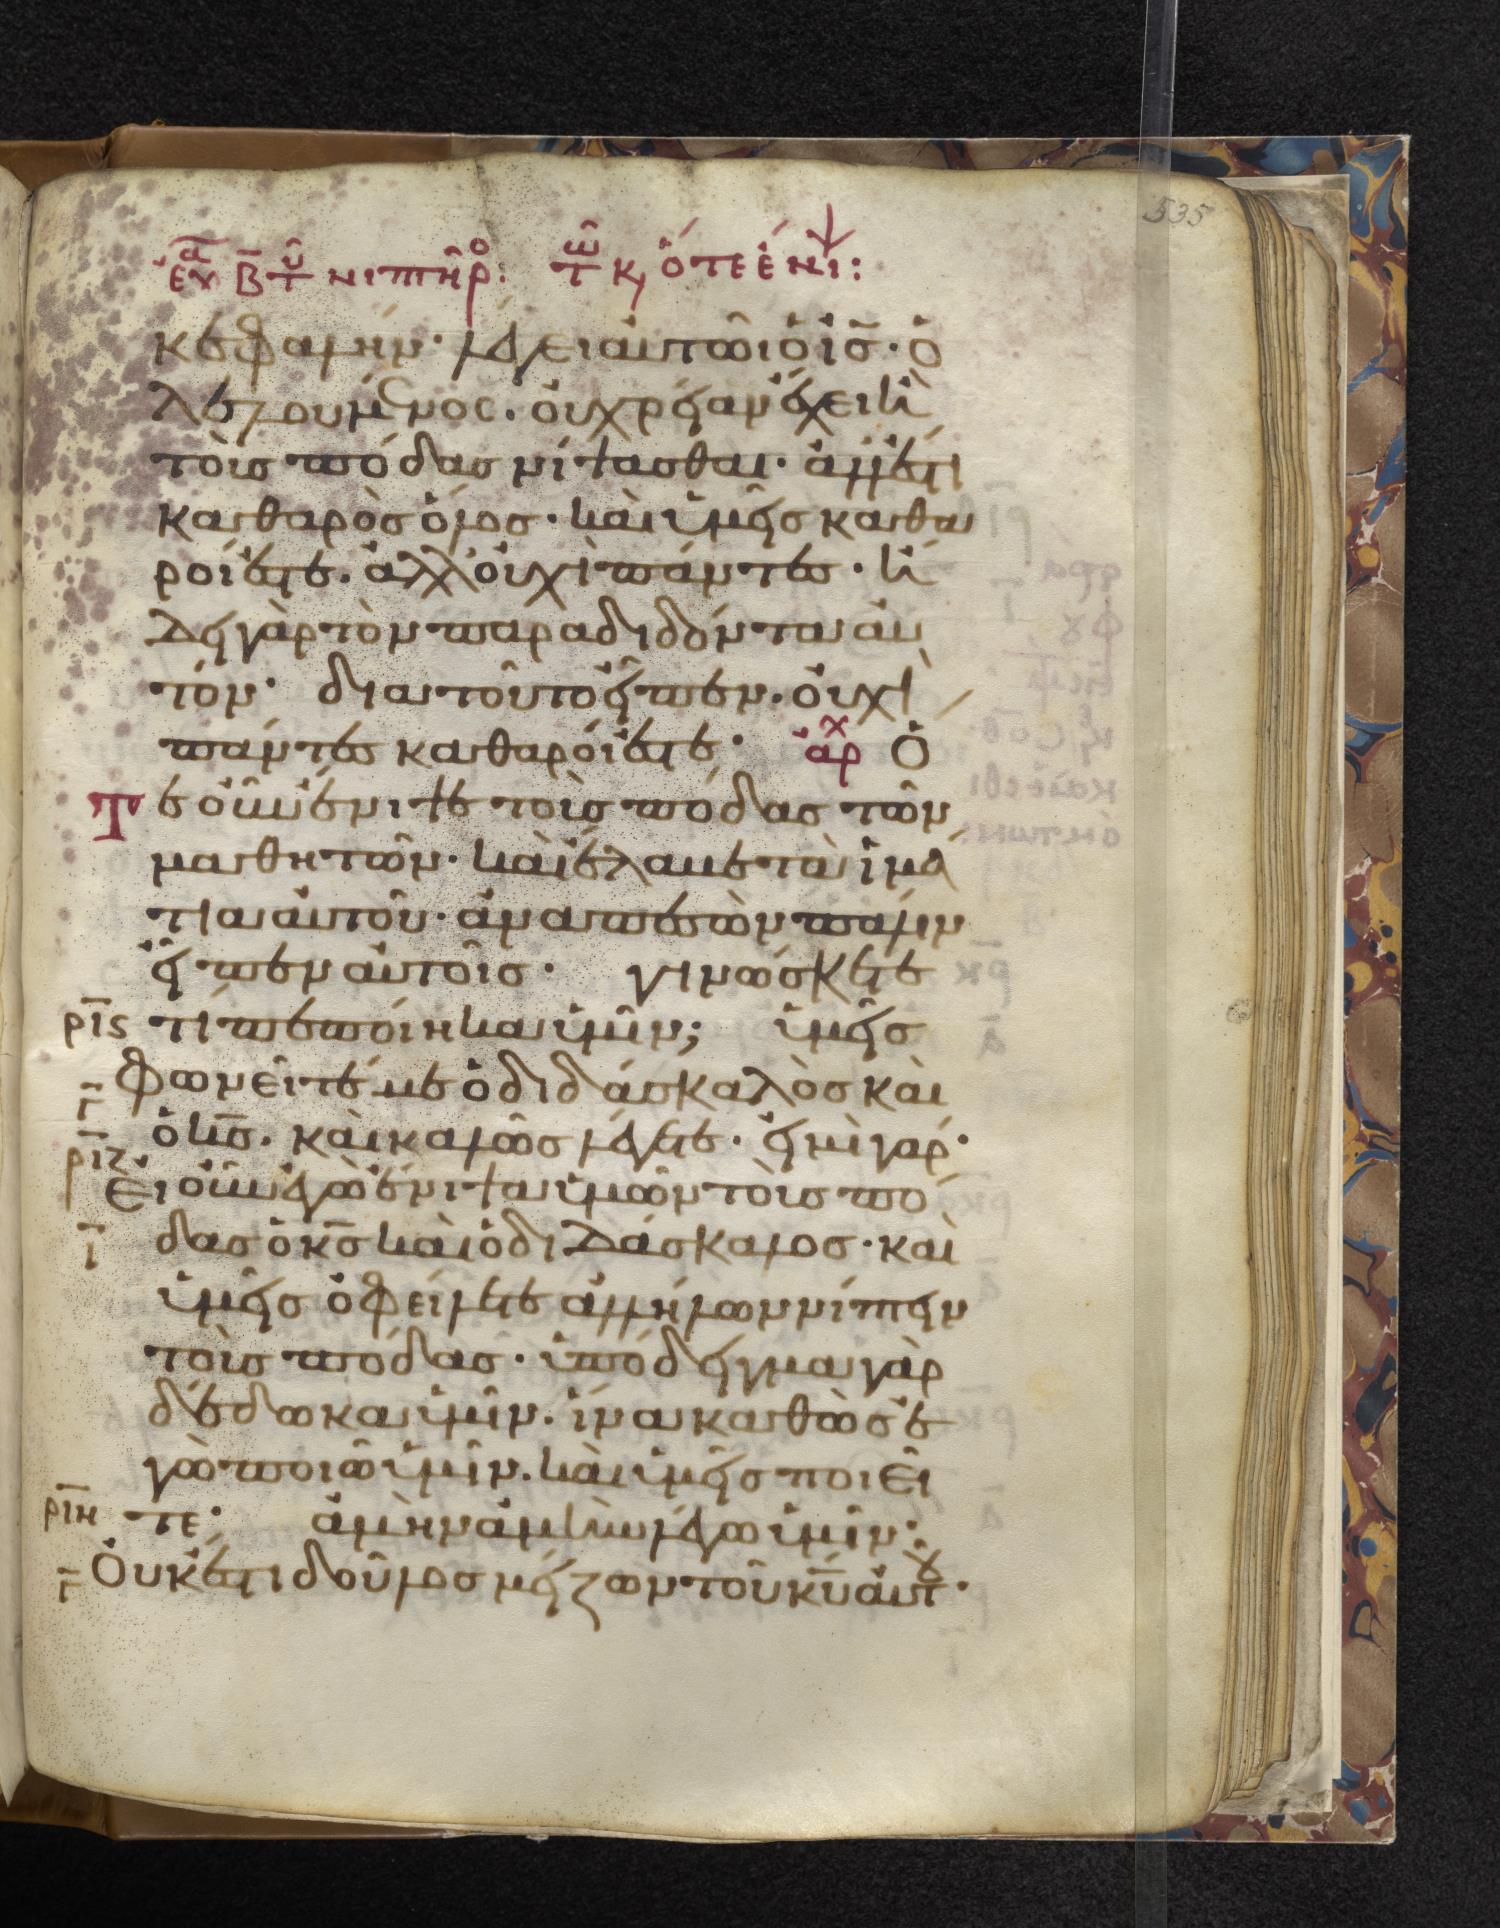 535
εὐα β τ νιπτῆρο: τω κω ὅτε ἔνι:
κεφαλήν· λέγει αὐτῶι ὁ ις̄· ὁ
λελουμένος· οὐ χρείαν ἔχει ἢ
τοὺς πόδας νίψασθαι· ἀλλ' ἔστι
καθαρὸς ὅλος· καὶ ὑμεῖς καθα
ροί ἐστε· ἀλλ' οὐχὶ πάντες· ἤ
δει γὰρ τὸν παραδιδόντα αὐ
τόν· διατοῦτο εἶπεν· οὐχὶ
πάντες καθαροί ἐστε· ἀρχ Ὁ
Τε οὖν ἔνιψε τοὺς πόδας τῶν
μαθητῶν· καὶ ἔλαβε τὰ ἱμά
τια αὐτοῦ· ἀναπεσὼν πάλιν
εἶπεν αὐτοῖς· γινώσκετε
ρις τί πεποίηκα ὑμῖν; ὑμεῖς
γ φωνεῖτέ με ὁ διδάσκαλος καὶ
ριζ ὁ κς̄· καὶ καλῶς λέγετε· εἰμὶ γάρ·
Εἰ οὖν ἐγὼ ἔνιψα ὑμῶν τοὺς πό
ι δας ὁ κς̄ καὶ ὁ διδάσκαλος· καὶ
ὑμεῖς ὀφείλετε ἀλλήλων νίπτειν
τοὺς πόδας· ὑπόδειγμα γὰρ
δέδωκα ὑμῖν· ἵνα καθὼς ἐ
γὼ ποιῶ ὑμῖν· καὶ ὑμεῖς ποιεῖ
ριη τε· ἀμὴν ἀμὴν λέγω ὑμῖν·
γ Οὐκ ἔστι δοῦλος μείζων τοῦ κῡ αὐτου·